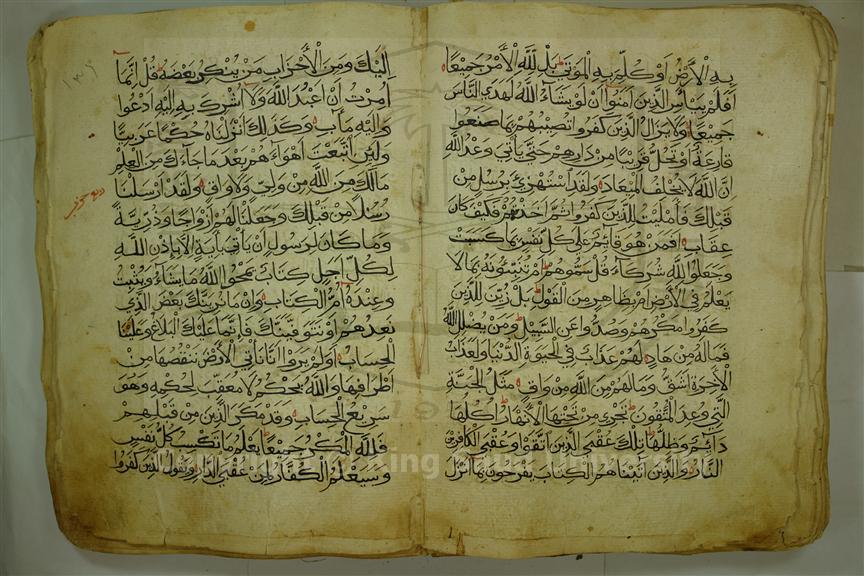 بِهِ الْاَرْضُ اَوْ كُلِّمَ بِهِ الْمَوْتٰى بَلْ لِلّٰهِ الْاَمْرُ جَمِيعًا
اَفَلَمْ يَيْأَسِ الَّذِينَ اٰمَنُوا اَنْ لَوْ يَشَاءُ اللّٰهُ لَهَدَى النَّاسَ
جَمِيعًا وَلَا يَزَالُ الَّذِينَ كَفَرُوا تُصِيبُهُمْ بِمَا صَنَعُوا
قَارِعَةٌ اَوْ تَحُلُّ قَرِيبًا مِنْ دَارِهِمْ حَتّٰى يَأْتِيَ وَعْدُ اللّٰهِ
اِنَّ اللّٰهَ لَا يُخْلِفُ الْمِيعَادَ وَلَقَدِ اسْتُهْزِئَ بِرُسُلٍ مِنْ
قَبْلِكَ فَاَمْلَيْتُ لِلَّذِينَ كَفَرُوا ثُمَّ اَخَذْتُهُمْ فَكَيْفَ كَانَ
عِقَابِ اَفَمَنْ هُوَ قَائِمٌ عَلٰى كُلِّ نَفْسٍ بِمَا كَسَبَتْ
وَجَعَلُوا لِلّٰهِ شُرَكَاءَ قُلْ سَمُّوهُمْ اَمْ تُنَبِّئُونَهُ بِمَا لَا
يَعْلَمُ فِي الْاَرْضِ اَمْ بِظَاهِرٍ مِنَ الْقَوْلِ بَلْ زُيِّنَ لِلَّذِينَ
كَفَرُوا مَكْرُهُمْ وَصُدُّوا عَنِ السَّبِيلِ وَمَنْ يُضْلِلِ اللّٰهُ
فَمَا لَهُ مِنْ هَادٍ لَهُمْ عَذَابٌ فِي الْحَيٰوةِ الدُّنْيَا وَلَعَذَابُ
الْاٰخِرَةِ اَشَقُّ وَمَا لَهُمْ مِنَ اللّٰهِ مِنْ وَاقٍ مَثَلُ الْجَنَّةِ
الَّتِي وُعِدَ الْمُتَّقُونَ تَجْرِي مِنْ تَحْتِهَا الْاَنْهَارُ اُكُلُهَا
دَائِمٌ وَظِلُّهَا تِلْكَ عُقْبَى الَّذِينَ اتَّقَوْا وَعُقْبَى الْكَافِرِينَ
النَّارُ وَالَّذِينَ اٰتَيْنَاهُمُ الْكِتَابَ يَفْرَحُونَ بِمَا اُنْزِلَ
اِلَيْكَ وَمِنَ الْاَحْزَابِ مَنْ يُنْكِرُ بَعْضَهُ قُلْ اِنَّمَا
اُمِرْتُ اَنْ اَعْبُدَ اللّٰهَ وَلَا اُشْرِكَ بِهِ اِلَيْهِ اَدْعُوا
وَاِلَيْهِ مَاٰبِ وَكَذٰلِكَ اَنْزَلْنَاهُ حُكْمًا عَرَبِيًّا
وَلَئِنِ اتَّبَعْتَ اَهْوَاءَهُمْ بَعْدَ مَا جَاءَكَ مِنَ الْعِلْمِ
مَا لَكَ مِنَ اللّٰهِ مِنْ وَلِيٍّ وَلَا وَاقٍ وَلَقَدْ اَرْسَلْنَا
رُسُلًا مِنْ قَبْلِكَ وَجَعَلْنَا لَهُمْ اَزْوَاجًا وَذُرِّيَّةً
وَمَا كَانَ لِرَسُولٍ اَنْ يَأْتِيَ بِاٰيَةٍ اِلَّا بِاِذْنِ اللّٰهِ
لِكُلِّ اَجَلٍ كِتَابٌ يَمْحُو اللّٰهُ مَا يَشَاءُ وَيُثْبِتُ
وَعِنْدَهُ اُمُّ الْكِتَابِ وَاِنْ مَا نُرِيَنَّكَ بَعْضَ الَّذِي
نَعِدُهُمْ اَوْ نَتَوَفَّيَنَّكَ فَاِنَّمَا عَلَيْكَ الْبَلَاغُ وَعَلَيْنَا
الْحِسَابُ اَوَلَمْ يَرَوْا اَنَّا نَأْتِي الْاَرْضَ نَنْقُصُهَا مِنْ
اَطْرَافِهَا وَاللّٰهُ يَحْكُمُ لَا مُعَقِّبَ لِحُكْمِهِ وَهُوَ
سَرِيعُ الْحِسَابِ وَقَدْ مَكَرَ الَّذِينَ مِنْ قَبْلِهِمْ
فَلِلّٰهِ الْمَكْرُ جَمِيعًا يَعْلَمُ مَا تَكْسِبُ كُلُّ نَفْسٍ
وَسَيَعْلَمُ الْكُفَّارُ لِمَنْ عُقْبَى الدَّارِ وَيَقُولُ الَّذِينَ كَفَرُوا